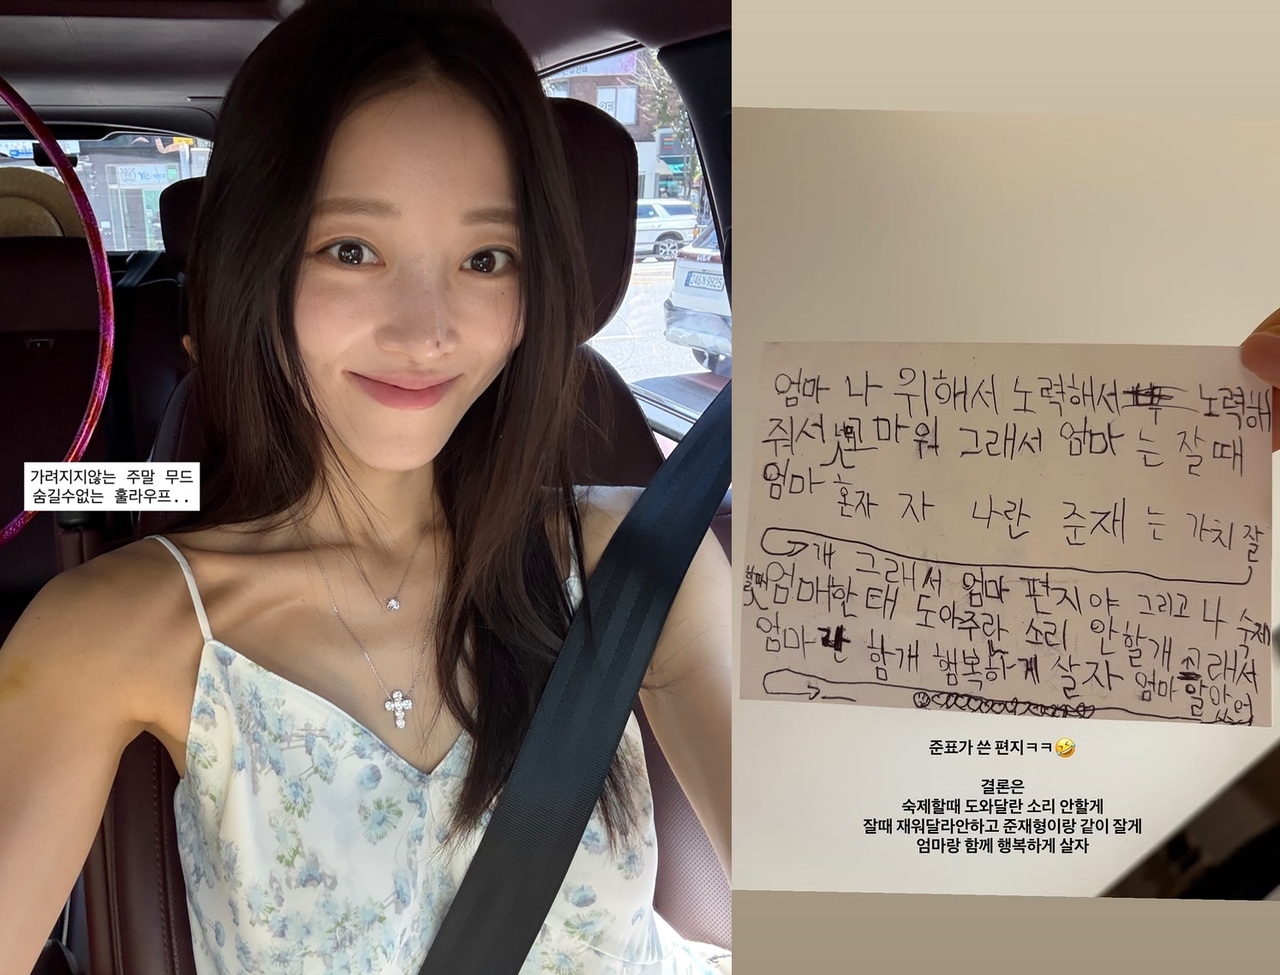 가려지지않는 주말 무드
숨길수없는 훌라우프..
엄마 나 위해서 노력해서 노력해
줘서 고마워 그래서 엄마는 잘때
엄마 혼자 자 나란 준재는 가치 잘
개 그래서 엄마 편지야 그리고 나 숙제
할때 엄마한태 도아주란 소리 안할개 그래서
엄마란 함개 행복하게 살자 엄마 알았어
준표가 쓴 편지ㅋㅋ🤣
결론은
숙제할때 도와달란 소리 안할게
잘때 재워달라안하고 준재형이랑 같이 잘게
엄마랑 함께 행복하게 살자